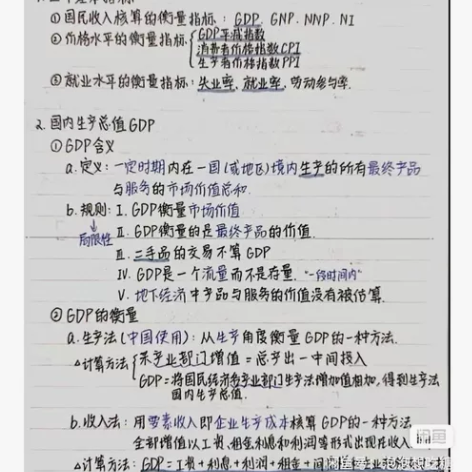 ①国民收入核算的衡量指标:GDP. GNP. NNP. NI
②价格水平的衡量指标
GDP平减指数
消费者价格指数CPI
生产者价格指数PPI
③就业水平的衡量指标:失业率,就业率,劳动参与率.
2.国内生产总值GDP
①GDP含义
a.定义:一定时期内在一国(或地区)境内生产的所有最终产品
与服务的市场价值总和.
b.规则:Ⅰ.GDP衡量市场价值
局限性
Ⅱ.GDP衡量的是最终产品的价值.
Ⅲ.二手品的交易不算GDP
Ⅳ.GDP是一个流量而不是存量."一段时间内"
Ⅴ.地下经济中产品与服务的价值没有被估算.
②GDP的衡量
a.生产法(中国使用):从生产角度衡量GDP的一种方法.
△计算方法
某产业部门增值=总产出-中间投入
GDP=将国民经济各产业部门生产法增加值相加,得到生产法
国内生产总值.
b.收入法:用要素收入即企业生产成本核算GDP的一种方法
全部增值以工资.租金利息和利润等形式出现在收入
闲鱼
△计算方法:GDP=工资+利息+利润+租金+间